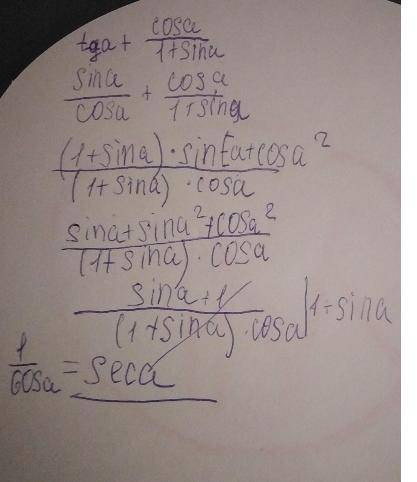 tga + cosa / 1+sina
sina / cosa + cosa / 1+sina
(1+sina) · sin[a+cosa² / (1+sina) · cosa
sina+sina²+cosa² / (1+sina) · cosa
sina+1 / (1+sina) · cosa | 1+sina
1 / cosa = seca